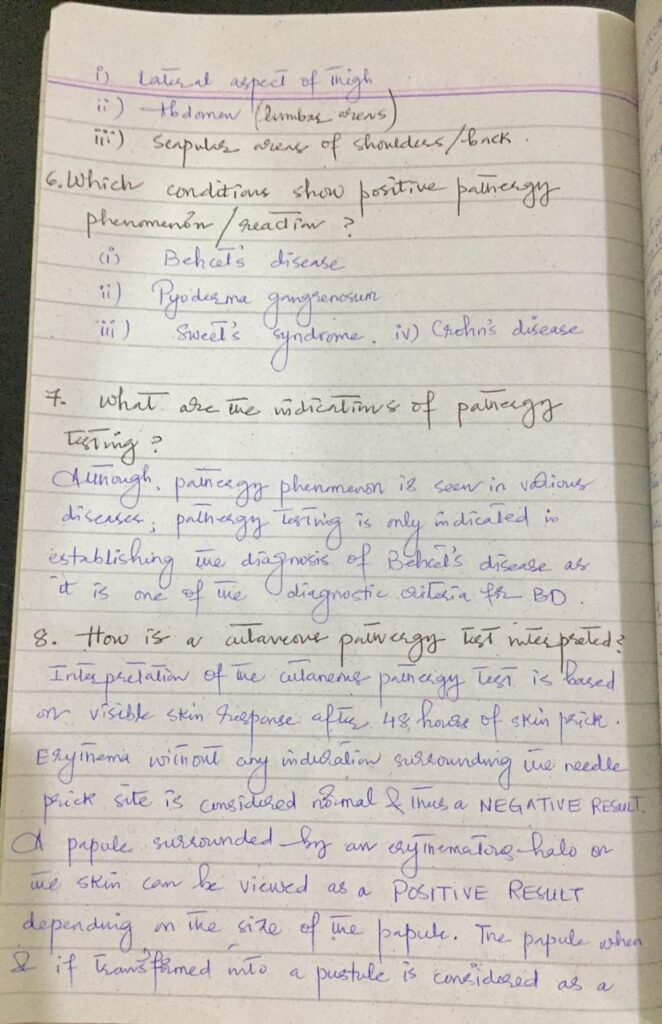 i) Lateral aspect of thigh
ii) Abdomen (lumbar areas)
iii) Scapular areas of shoulders/back.
6. Which conditions show positive pathergy
phenomenon/reaction?
(i) Behcet's disease
ii) Pyoderma gangrenosum
iii) Sweet's syndrome. iv) Crohn's disease
7. What are the indications of pathergy
testing?
Although, pathergy phenomenon is seen in various
diseases, pathergy testing is only indicated in
establishing the diagnosis of Behcet's disease as
it is one of the diagnostic criteria for BD.
8. How is a cutaneous pathergy test interpreted?
Interpretation of the cutaneous pathergy test is based
on visible skin response after 48 hours of skin prick.
Erythema without any induration surrounding the needle
prick site is considered normal & thus a NEGATIVE RESULT.
A papule surrounded by an erythematous halo on
the skin can be viewed as a POSITIVE RESULT
depending on the size of the papule. The papule when
& if transformed into a pustule is considered as a